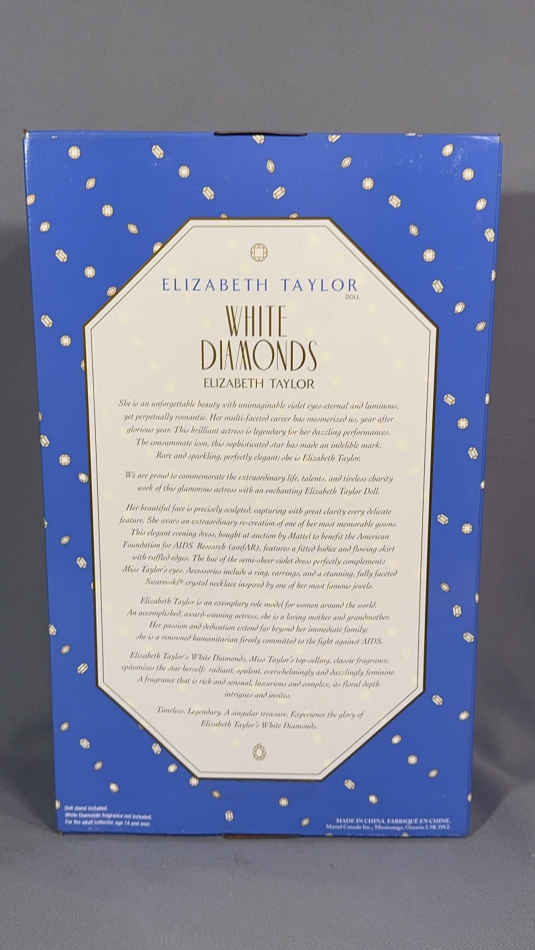 ELIZABETH TAYLOR
DOLL
WHITE
DIAMONDS
ELIZABETH TAYLOR
She is an unforgettable beauty with unimaginable violet eyes–eternal and luminous,
yet perpetually romantic. Her multi-faceted career has mesmerized us, year after
glorious year. This brilliant actress is legendary for her dazzling performances.
The consummate icon, this sophisticated star has made an indelible mark.
Rare and sparkling, perfectly elegant; she is Elizabeth Taylor.
We are proud to commemorate the extraordinary life, talents, and tireless charity
work of this glamorous actress with an enchanting Elizabeth Taylor Doll.
Her beautiful face is precisely sculpted, capturing with great clarity every delicate
feature. She wears an extraordinary re-creation of one of her most memorable gowns.
This elegant evening dress, bought at auction by Mattel to benefit the American
Foundation for AIDS Research (amfAR), features a fitted bodice and flowing skirt
with ruffled edges. The hue of the semi-sheer violet dress perfectly complements
Miss Taylor's eyes. Accessories include a ring, earrings, and a stunning, fully faceted
Swarovski® crystal necklace inspired by one of her most famous jewels.
Elizabeth Taylor is an exemplary role model for women around the world.
An accomplished, award-winning actress, she is a loving mother and grandmother.
Her passion and dedication extend far beyond her immediate family;
she is a renowned humanitarian firmly committed to the fight against AIDS.
Elizabeth Taylor's White Diamonds, Miss Taylor's top-selling, classic fragrance,
epitomizes the star herself: radiant, opulent, overwhelmingly and dazzlingly feminine.
A fragrance that is rich and sensual, luxurious and complex, its floral depth
intrigues and invites.
Timeless. Legendary. A singular treasure. Experience the glory of
Elizabeth Taylor's White Diamonds.
Doll stand included.
White Diamonds fragrance not included.
For the adult collector, age 14 and over.
MADE IN CHINA. FABRIQUÉ EN CHINE.
Mattel Canada Inc., Mississauga, Ontario L5R 3W2.